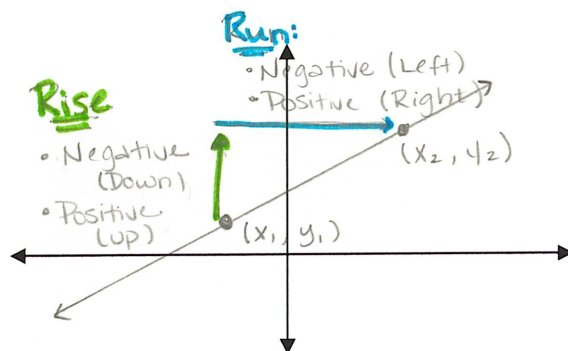 Run:
• Negative (Left)
• Positive (Right)
Rise
• Negative
(Down)
• Positive
(up)
(x₂, y₂)
(x₁, y₁)